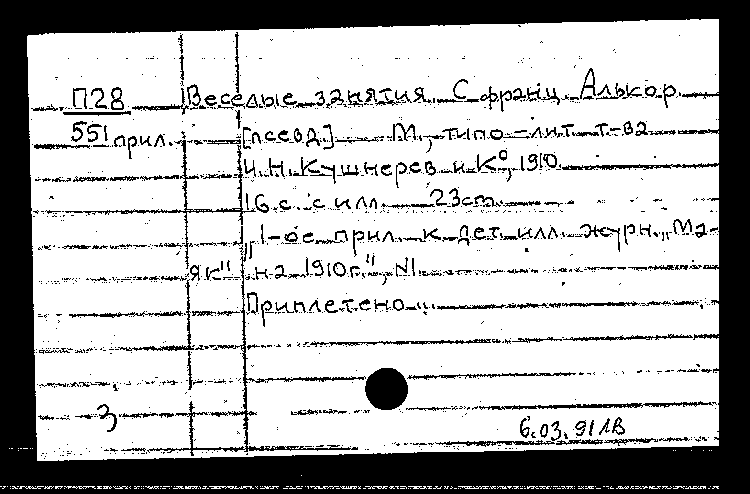 П28 Веселые занятия. С франц. Алькор
551 прил. [псевд.] М., типо-лит. т-ва
И.Н. Кушнерев и К°, 1910.
16 с. с илл. 23cm.
„1-ое прил. к дет. илл. журн. „Ма-
як" на 1910г.", N1.
Приплетено.
3
6.03.91 АВ